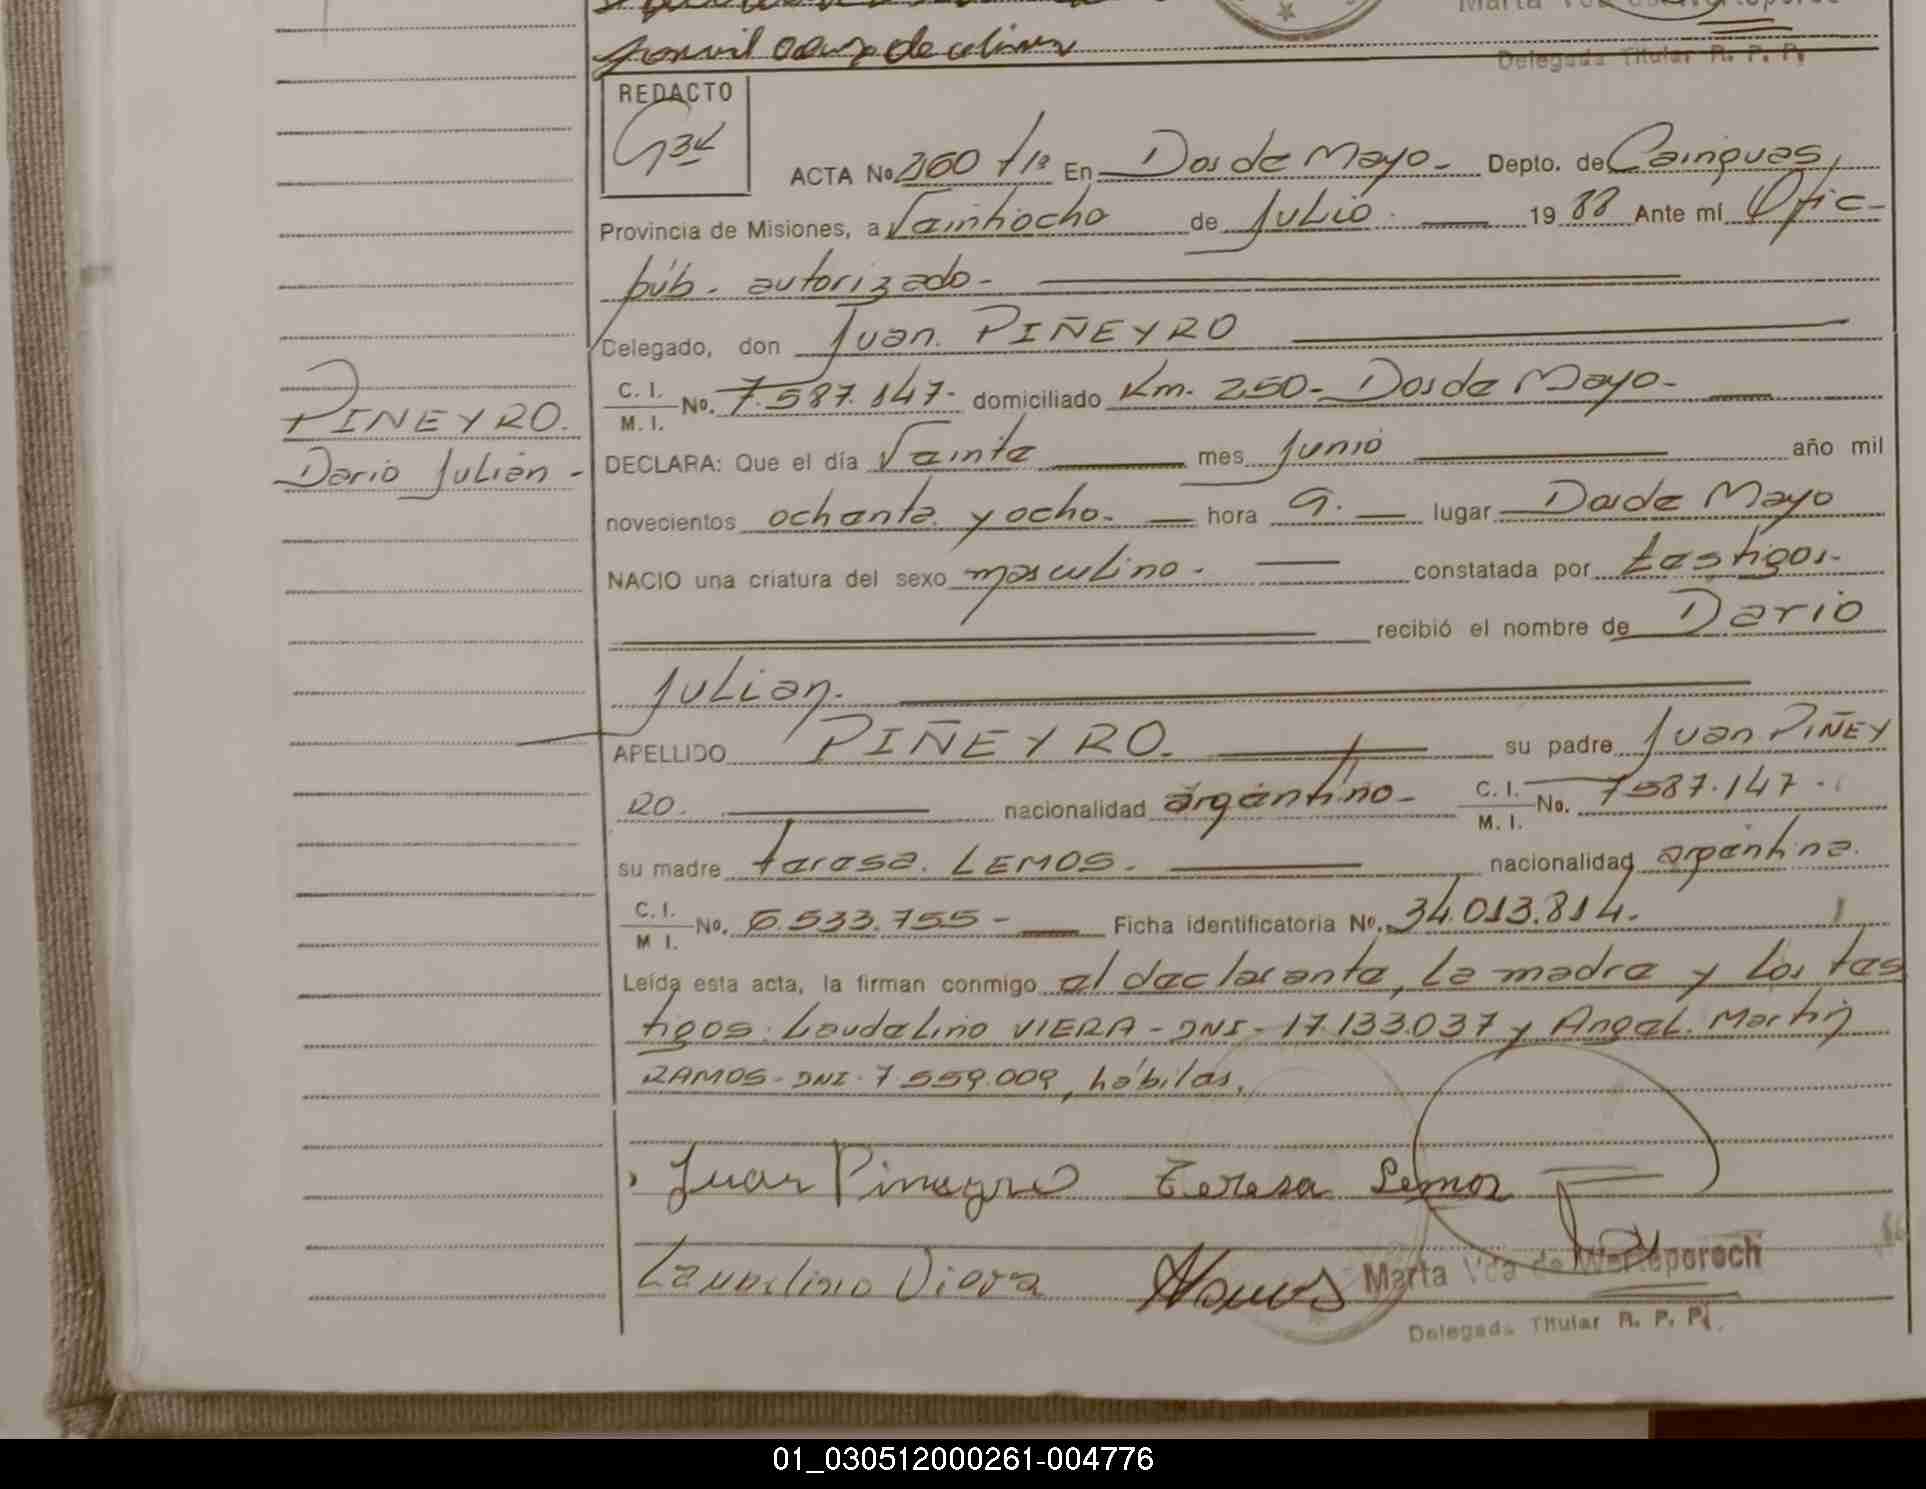 REDACTO
ACTA No 260 tº1º En Dos de Mayo - Depto. de Cainguas,
Provincia de Misiones, a Veintiocho de Julio. 19 88 Ante mí Ofic-
púb. autorizado -
Delegado, don Juan. PIÑEYRO
C. I.
M. I. No. 7.587.147- domiciliado Km. 250 - Dos de Mayo -
DECLARA: Que el día Veinte mes Junio año mil
novecientos ochenta y ocho. hora 9. lugar Dos de Mayo
NACIO una criatura del sexo masculino. constatada por testigos.
recibió el nombre de Dario
Julian.
APELLIDO PIÑEYRO. su padre Juan PIÑEY
RO. nacionalidad argentino - C. I.
M. I. No. 7587.147.
su madre teresa. LEMOS. nacionalidad argentina.
C. I.
M I. No. 6.533.755 - Ficha identificatoria Nº. 34.013.814.
Leída esta acta, la firman conmigo el declarante, la madre y los tes
tigos: Laudelino VIERA - DNI - 17.133.037 y Angel. Martin
RAMOS - DNI - 7.559.009, hábiles.
PIÑEYRO.
Dario Julián -
Juan Pineyro Teresa Lemos
Laudelino Viera
Marta Vda de
Delegada Titular R. P. P.
Delegada Titular R. P. P.
01_030512000261-004776